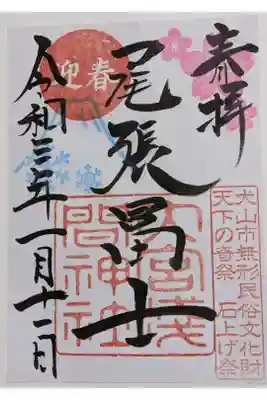 奉拝
迎春
尾張冨士
大宮浅
間神社
犬山市無形民俗文化財
天下の奇祭 石上げ祭
令和三年一月十一日